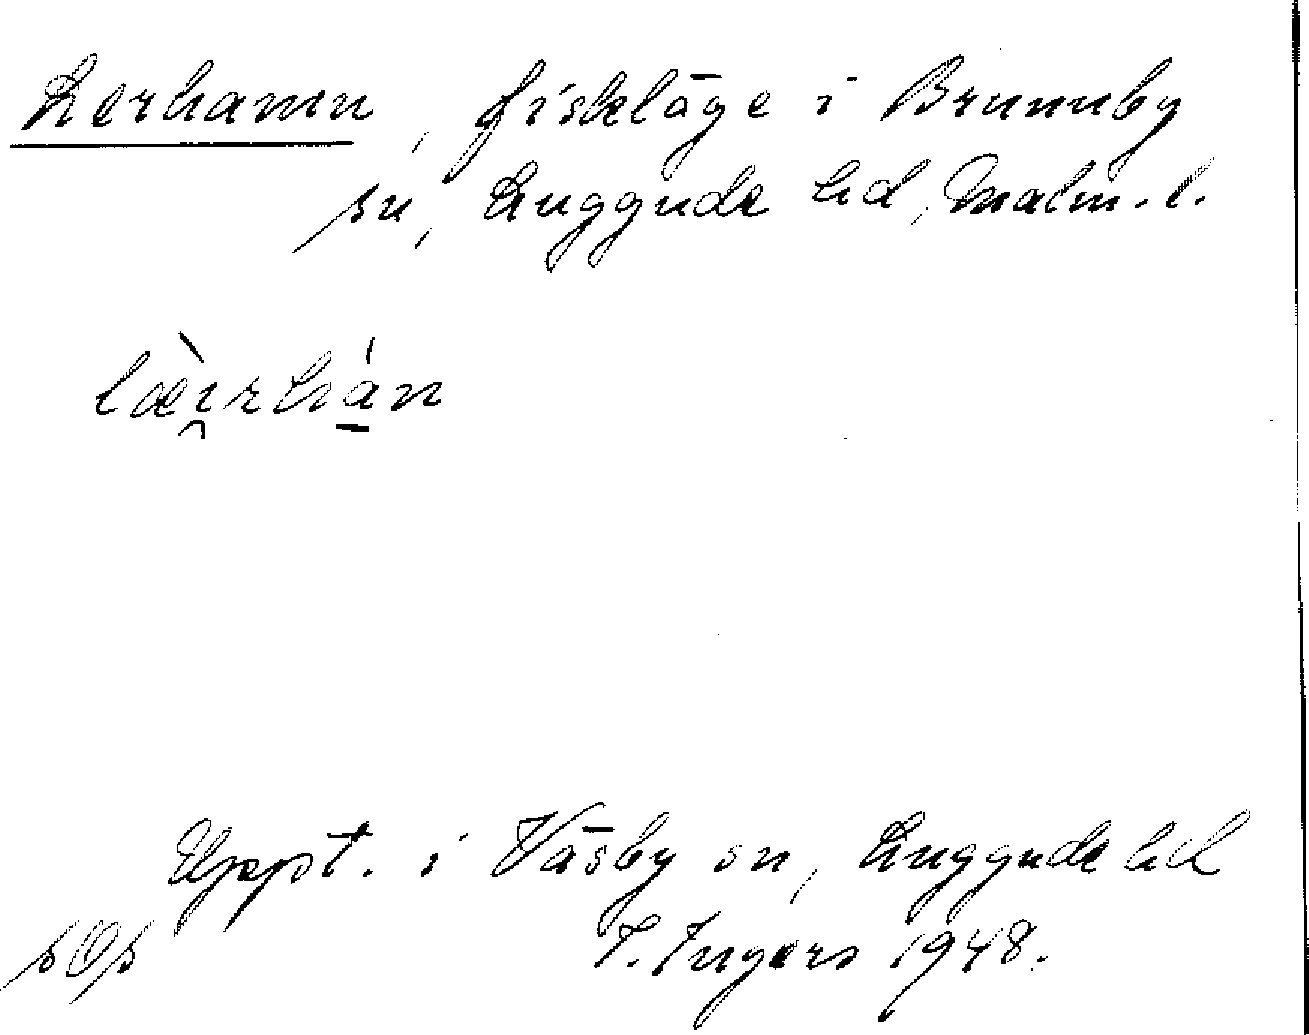 Lerhamn, fiskläge i Brunnby
sn, Luggude hd, Malm. l.
læ̀i̯rhá̱n
Uppt. i Väsby sn, Luggude hd
sOs T. Ingers 1948.